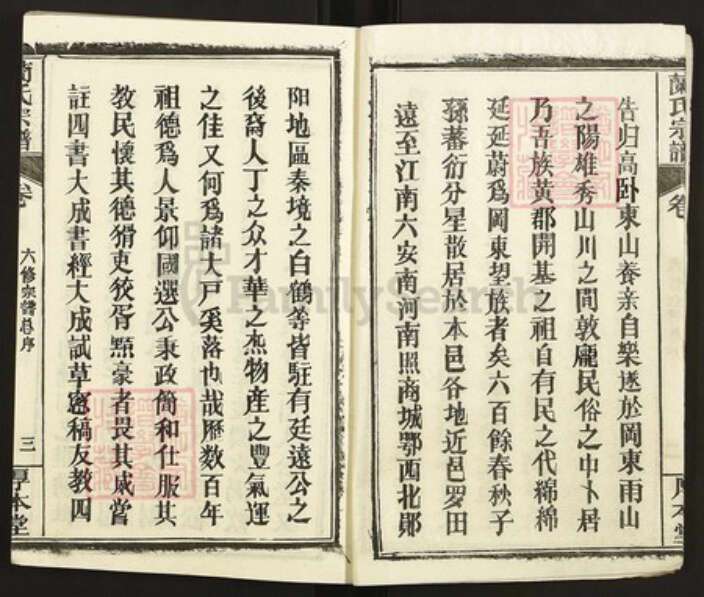 蘭氏宗譜
卷
厚本堂
告归高卧東山養亲自樂遂於岡東雨山
之陽雄秀山川之間敦龐民俗之中卜居
乃吾族黄郡開基之祖自有民之代綿綿
延延蔚爲岡東望族者矣六百餘春秋子
孫蕃衍分星散居於本邑各地近邑罗田
遠至江南六安南河南照商城鄂西北鄖
阳地區秦境之白鶴等皆駐有廷遠公之
後裔人丁之众才華之烝物産之豐氣運
之佳又何爲諸大户奚落也哉歷数百年
祖德爲人景仰國選公秉政簡和仕服其
教民懷其德猾吏狡胥黠豪者畏其威嘗
註四書大成書經大成試草窓稿友教四
蘭氏宗譜
卷
六修宗譜总序
三
厚本堂
FamilySearch